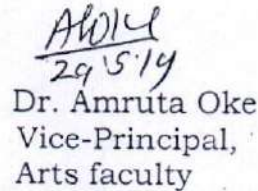 29/5/19
Dr. Amruta Oke
Vice-Principal,
Arts faculty